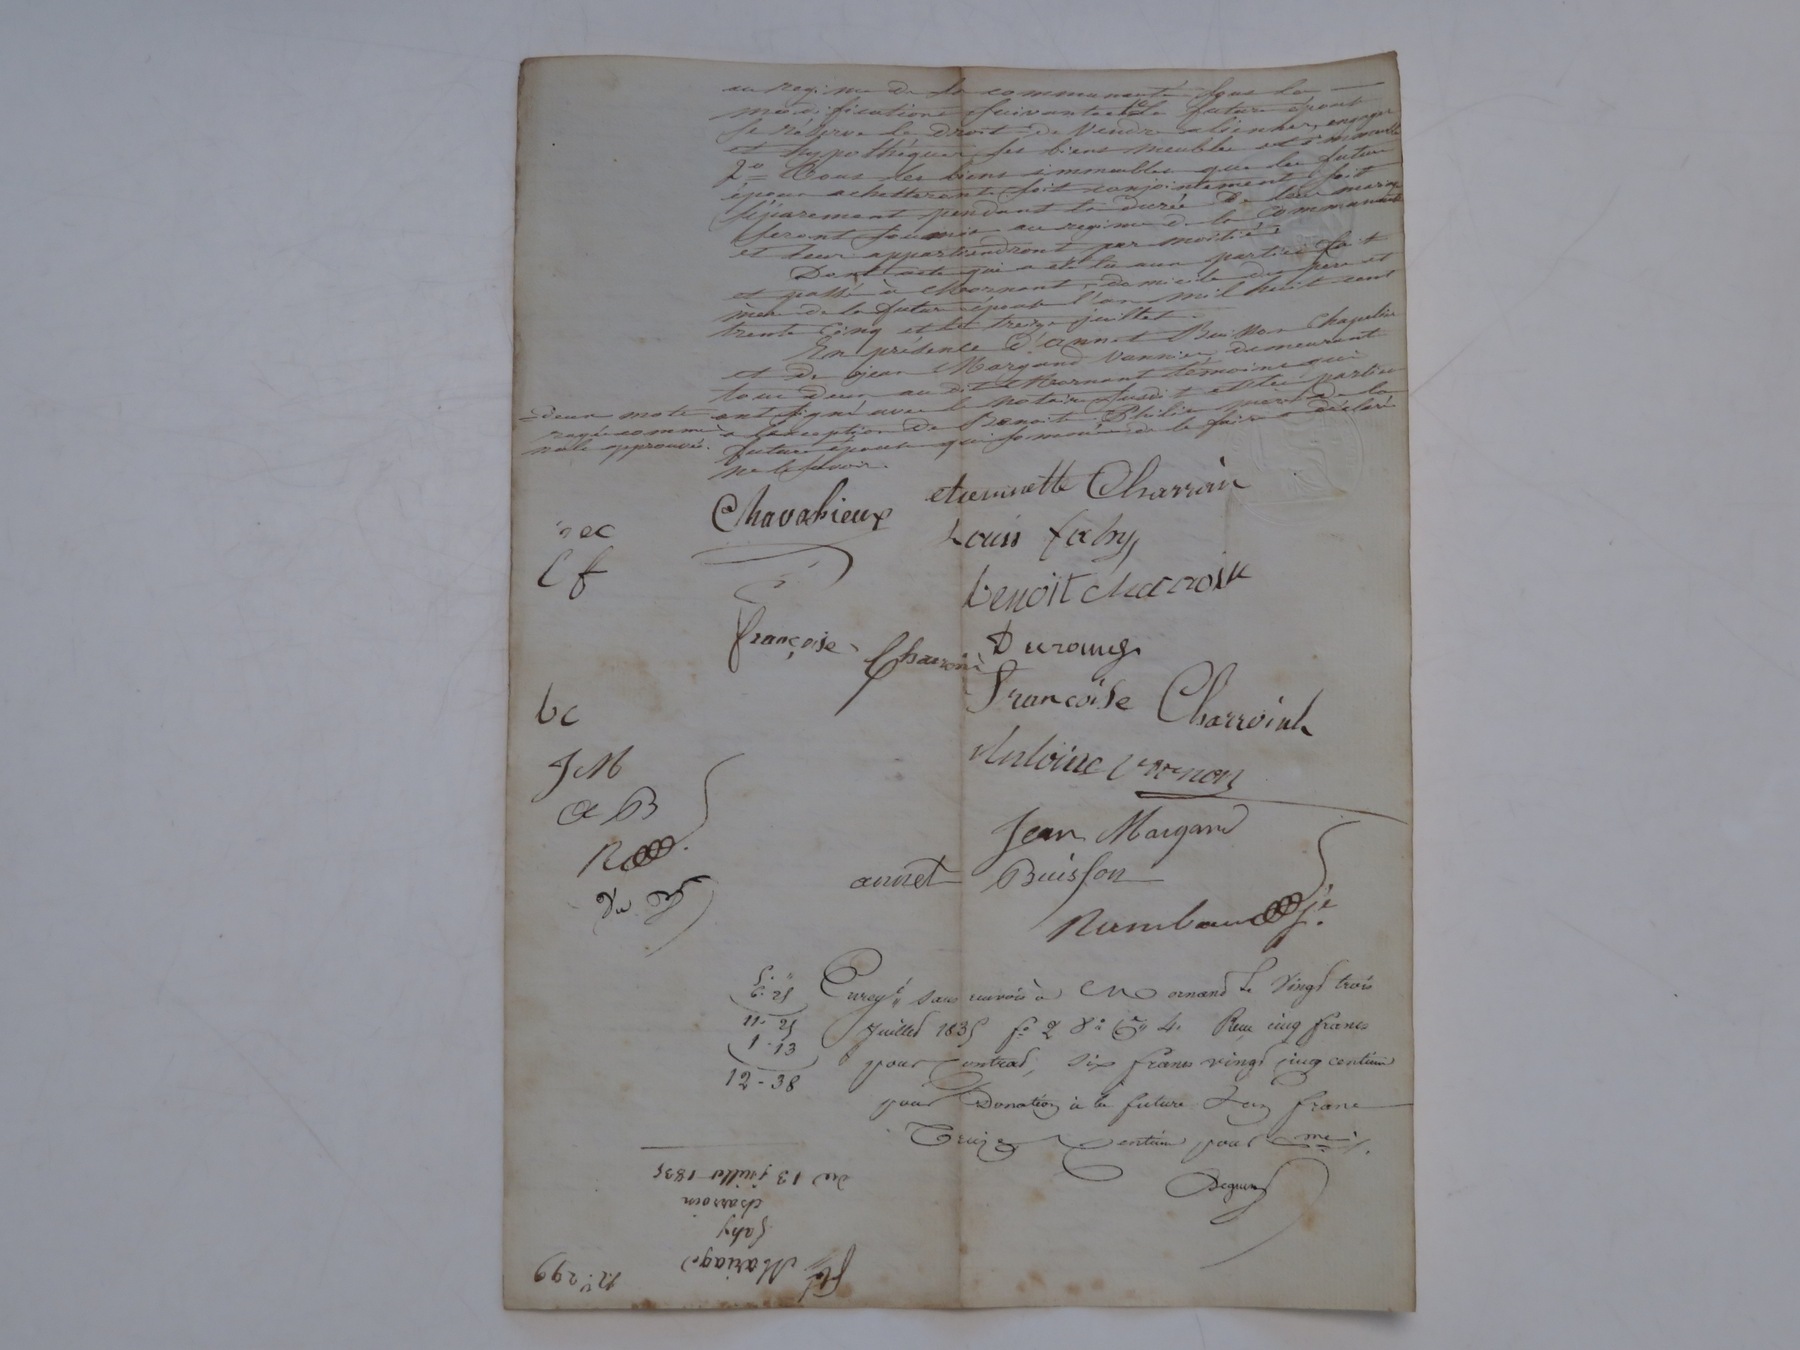 au regime de la communauté sous les
modifications suivantes 1° la future épouse
se reserve le droit de vendre, alienner, engager
et hypothéquer ses biens meubles et immeubles
2° Tous les biens immeubles que les futurs
époux achetteront soit conjointement soit
séparement pendant la durée de leur mariage
seront soumis au regime de la communauté
et leur appartiendront par moitié.
Dont acte qui a été lu aux parties fait
et passé à Mornant, domicile des père et
mère de la future épouse l'an mil huit cent
trente cinq et le treize juillet.
En présence d'annet Buisson chapelier
et de jean Margand vannier demeurant
tous deux au dit Mornant témoins qui
ont signé avec le notaire susdit et les parties
à l'exception de Benoite Philis mère de la
future épouse qui sommée de le faire a déclaré
ne le savoir.
= deux mots
rayés comme
nuls approuvé.
Chavassieux etiennette Charroin
Louis fahy
benoit charroin
françoise Charroin Durang
Francoise Charroin
Antoine Vernon
Jean Margand
annet Buisson
Rambaud
ec
Lf
bc
JM
a B
R
Enregt sans renvois à Mornand le Vingt trois
Juillet 1835 f° 2 V° Cs 4. Reçu cinq francs
pour Contrat, six francs vingt cinq centimes
pour Donation à la future & un franc
Treize Centimes pour
5. "
6. 25
11. 25
1. 13
12-38
du 13 juillet 1835
charroin
fahy
Mariage
N° 299